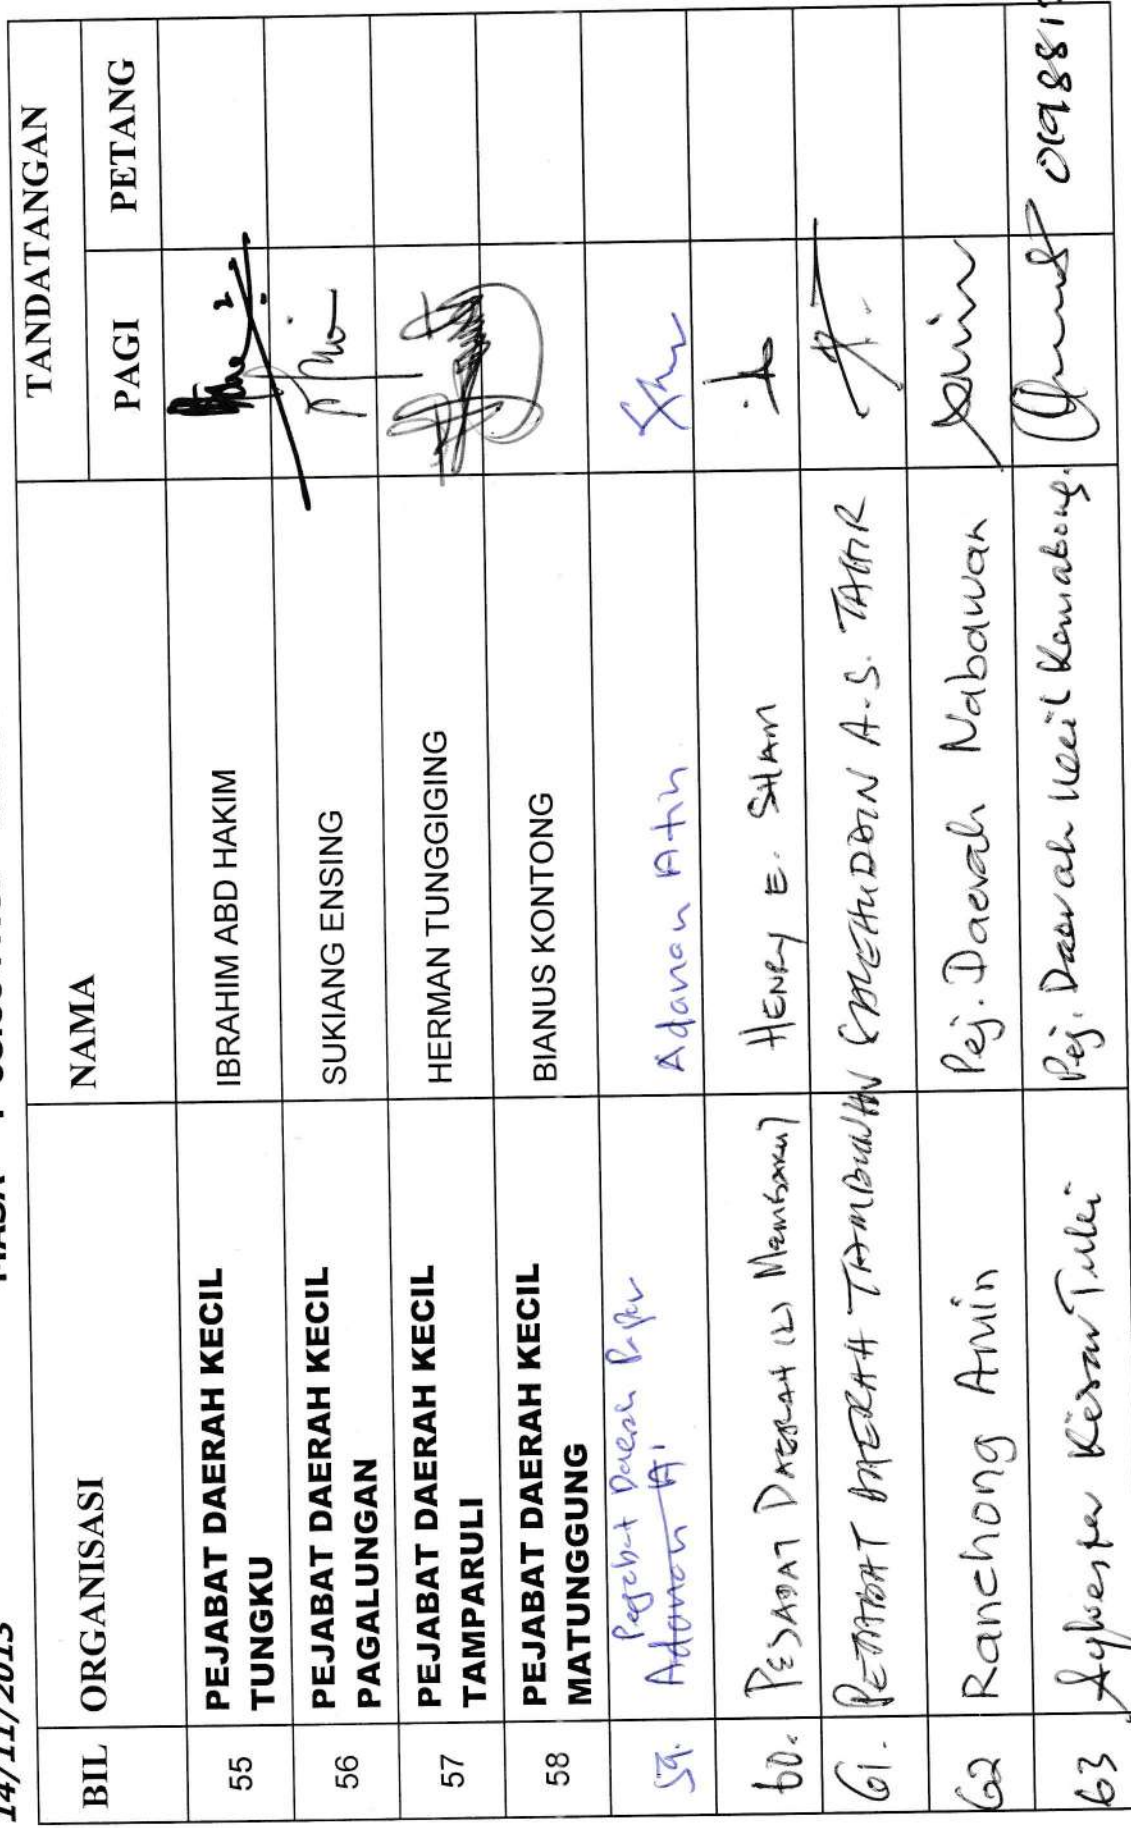 14/11/2013
BIL ORGANISASI NAMA TANDATANGAN
PAGI PETANG
55 PEJABAT DAERAH KECIL
TUNGKU
IBRAHIM ABD HAKIM
56 PEJABAT DAERAH KECIL
PAGALUNGAN
SUKIANG ENSING
57 PEJABAT DAERAH KECIL
TAMPARULI
HERMAN TUNGGIGING
58 PEJABAT DAERAH KECIL
MATUNGGUNG
BIANUS KONTONG
59. Pejabat Daerah Papar
Adanan Ati
Adanan Atin
60. PEJABAT DAERAH (K) Membakut HENRY E. SHAM
61. PEJABAT DAERAH TAMBUNAN A.S. TAHIR
62 Ranchong Amin Pej. Daerah Nabawan
63 Pej. Daerah Kecil Kemabong.